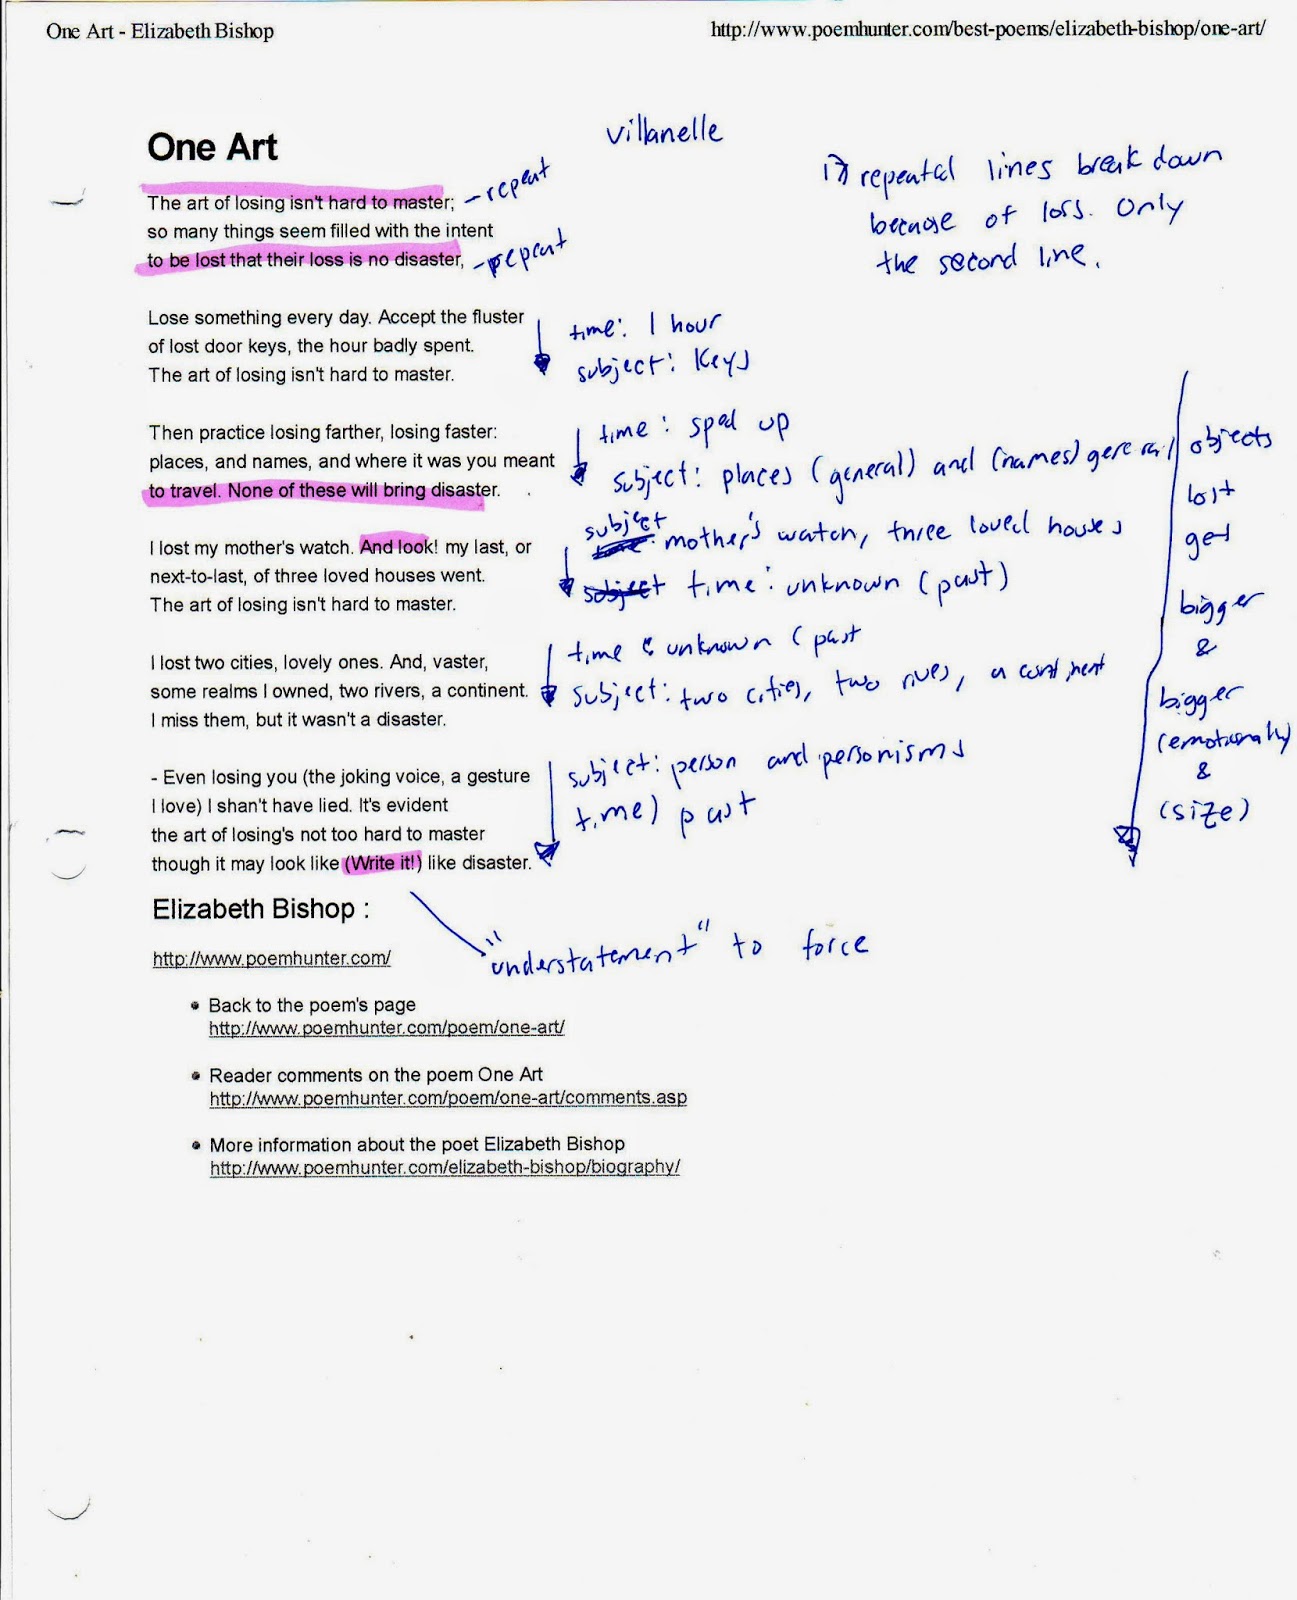 One Art - Elizabeth Bishop
http://www.poemhunter.com/best-poems/elizabeth-bishop/one-art/
One Art
villanelle
The art of losing isn't hard to master; - repeat
so many things seem filled with the intent
to be lost that their loss is no disaster, - repeat
repeatal lines break down
because of loss. Only
the second line.
Lose something every day. Accept the fluster
of lost door keys, the hour badly spent.
The art of losing isn't hard to master.
time: 1 hour
subject: Keys
Then practice losing farther, losing faster:
places, and names, and where it was you meant
to travel. None of these will bring disaster.
time: sped up
subject: places (general) and (names) general
I lost my mother's watch. And look! my last, or
next-to-last, of three loved houses went.
The art of losing isn't hard to master.
subject
: mother's watch, three loved houses
subject time: unknown (past)
I lost two cities, lovely ones. And, vaster,
some realms I owned, two rivers, a continent.
I miss them, but it wasn't a disaster.
time: unknown (past
subject: two cities, two rives, a continent
- Even losing you (the joking voice, a gesture
I love) I shan't have lied. It's evident
the art of losing's not too hard to master
though it may look like (Write it!) like disaster.
subject: person and personisms
time) past
objects
lost
get
bigger
&
bigger
(emotionally)
&
(size)
"understatement" to force
Elizabeth Bishop :
http://www.poemhunter.com/
• Back to the poem's page
http://www.poemhunter.com/poem/one-art/
• Reader comments on the poem One Art
http://www.poemhunter.com/poem/one-art/comments.asp
• More information about the poet Elizabeth Bishop
http://www.poemhunter.com/elizabeth-bishop/biography/